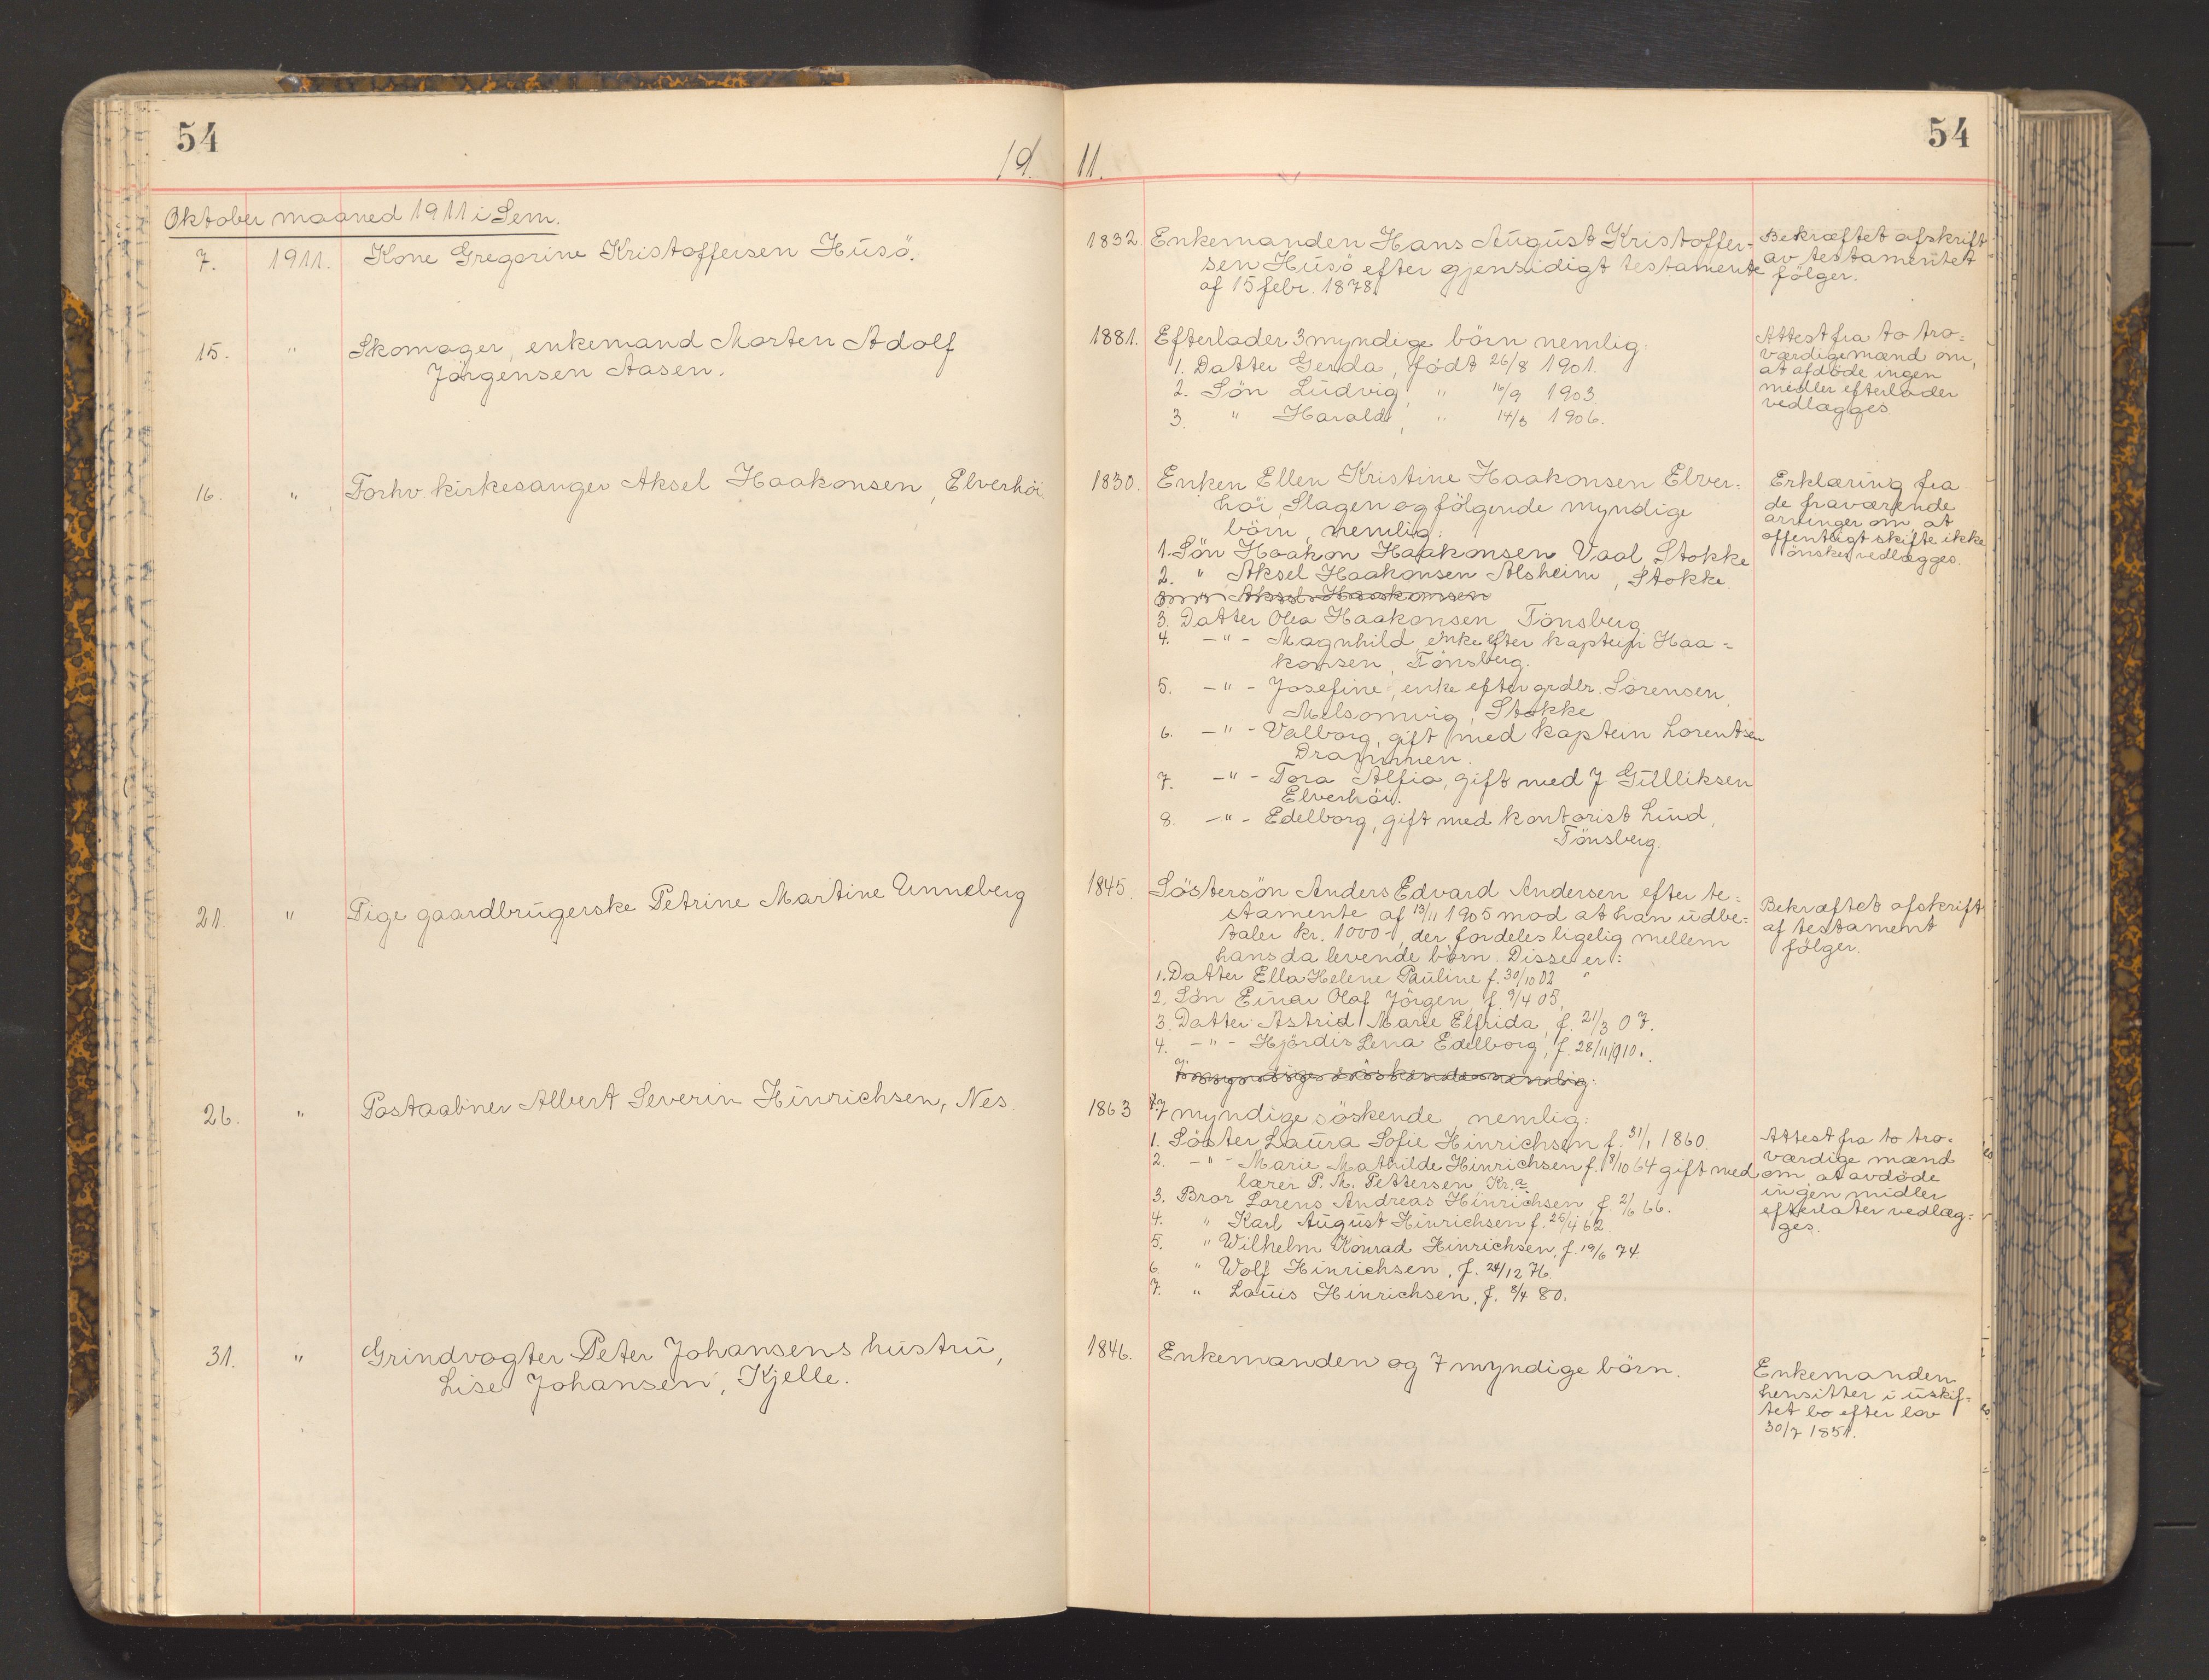 54
19
11.
54
Oktober maaned 1911 i Sem.
7. 1911. Kone Gregorine Kristoffersen Husö.
1832. Enkemanden Hans August Kristoffer-
sen Husö efter gjensidigt testamente
af 15 febr. 1878.
Bekræftet afskrift
av testamentet
fölger.
15. " Skomager, enkemand Morten Adolf
Jörgensen Aasen.
1881. Efterlader 3 myndige börn nemlig:
1. Datter Gerda, födt 26/8 1901.
2. Sön Ludvig, " 16/9 1903
3. " Harald, " 14/3 1906.
Attest fra to tro=
værdige mænd om,
at afdöde ingen
midler efterlader
vedlægges
16. " Forhv. kirkesanger Aksel Haakonsen, Elverhöi
1830. Enken Ellen Kristine Haakonsen Elver=
höi, Slagen og fölgende myndige
börn, nemlig:
1. Sön Haakon Haakonsen Vaal, Stokke
2. " Aksel Haakonsen Alsheim, Stokke
3. " Aksel Haakonsen
3. Datter Olea Haakonsen, Tönsberg
4. -"- Magnhild, enke efter kaptein Haa=
konsen, Tönsberg.
5. -"- Josefine, enke efter grdbr. Sörensen,
Melsomvig, Stokke
6. -"- Valborg, gift med kaptein Lorentsen
Drammen.
7. -"- Tora Alfia, gift med J. Gulliksen
Elverhöi.
8. -"- Edelborg, gift med kontorist Lund,
Tönsberg.
Erklæring fra
de fraværende
arvinger om, at
offentligt skifte ikke
önskes vedlægges.
21. " Pige gaardbrugerske Petrine Martine Unneberg
1845. Söstersön Anders Edvard Andersen efter te=
stamente af 13/11 1905 mod at han udbe=
taler kr. 1000-, der fordeles ligelig mellem
hans da levende börn. Disse er:
1. Datter Ella Helene Pauline f. 30/10 02
2. Sön Einar Olaf Jörgen, f. 9/4 05,
3. Datter Astrid Marie Elfrida, f. 21/3 07.
4. -"- Hjördis Lena Edelborg, f. 28/11 1910.
Bekræftet afskrift
af testament
fölger.
7 myndige söskende nemlig:
26. " Postaabner Albert Severin Hinrichsen, Nes.
1863 7 myndige söskende, nemlig:
1. Söster Laura Sofie Hinrichsen f. 31/1 1860.
2. -"- Marie Mathilde Hinrichsen f. 8/10 64 gift med
lærer P. M. Pettersen Kr.a
3. Bror Lorens Andreas Hinrichsen, f. 2/6 66.
4. " Karl August Hinrichsen f. 25/4 62.
5. " Wilhelm Konrad Hinrichsen, f. 19/6 74.
6. " Wolf Hinrichsen, f. 24/12 76.
7. " Louis Hinrichsen, f. 8/4 80.
Attest fra to tro=
værdige mænd
om, at avdöde
ingen midler
efterlater vedlæg=
ges.
31. " Grindvogter Peter Johansens hustru,
Lise Johansen, Kjelle.
1846. Enkemanden og 7 myndige börn.
Enkemanden
hensitter i uskif=
tet bo efter lov
30/7 1851.